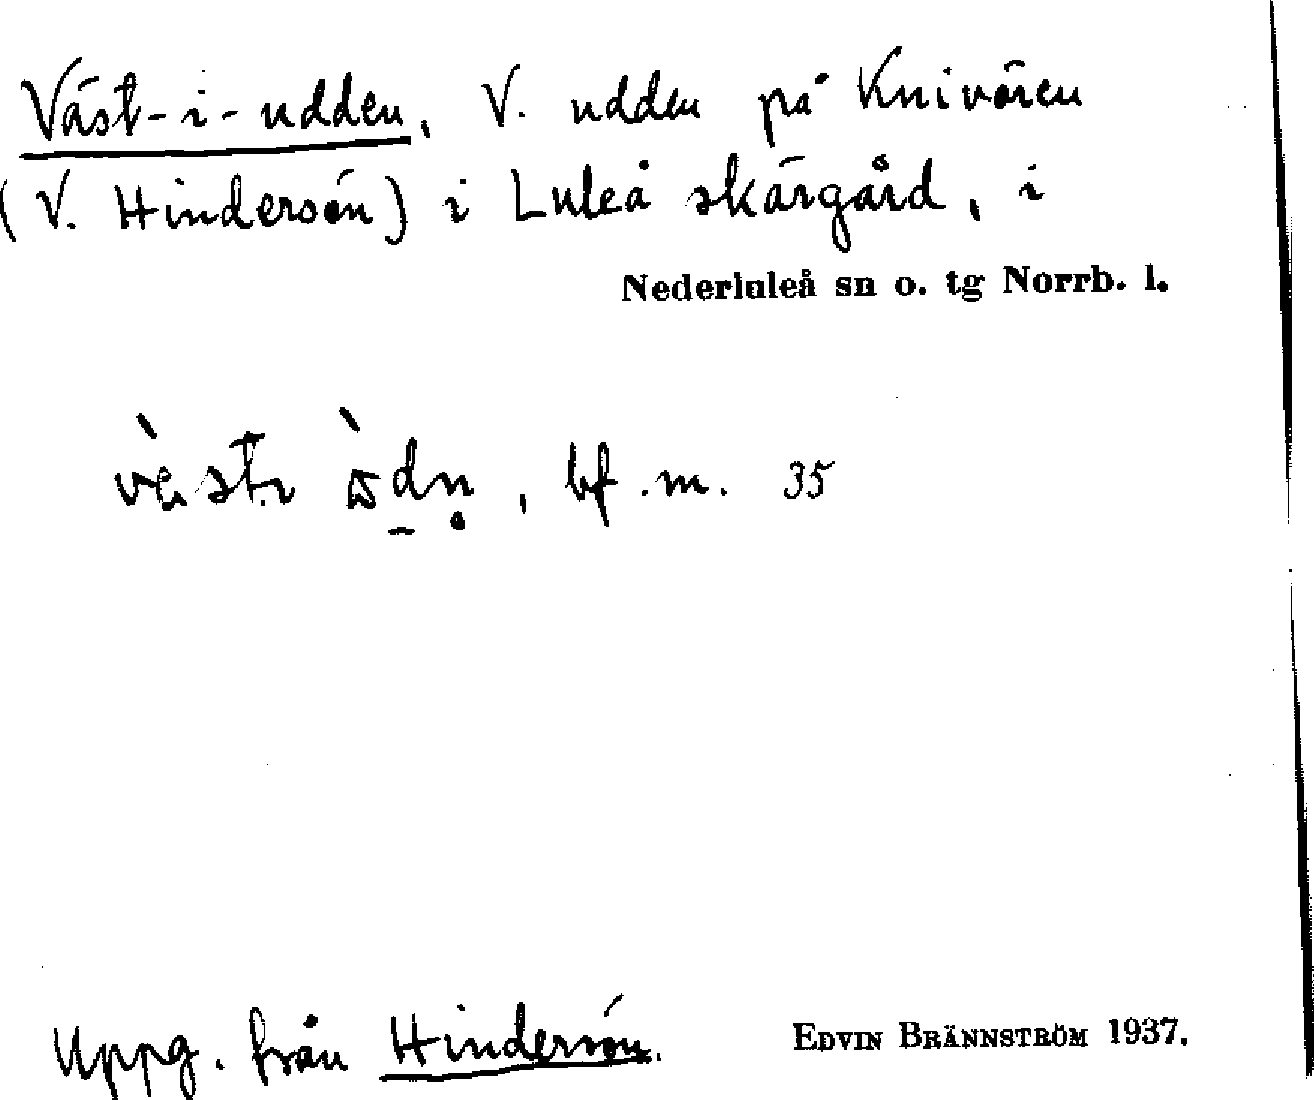 Väst-i-udden, V. udden på Knivören
(V. Hindersön) i Luleå skärgård, i
Nederluleå sn o. tg Norrb. l.
, bf. m. 35
Uppg. från Hindersön. EDVIN BRÄNNSTRÖM 1937.